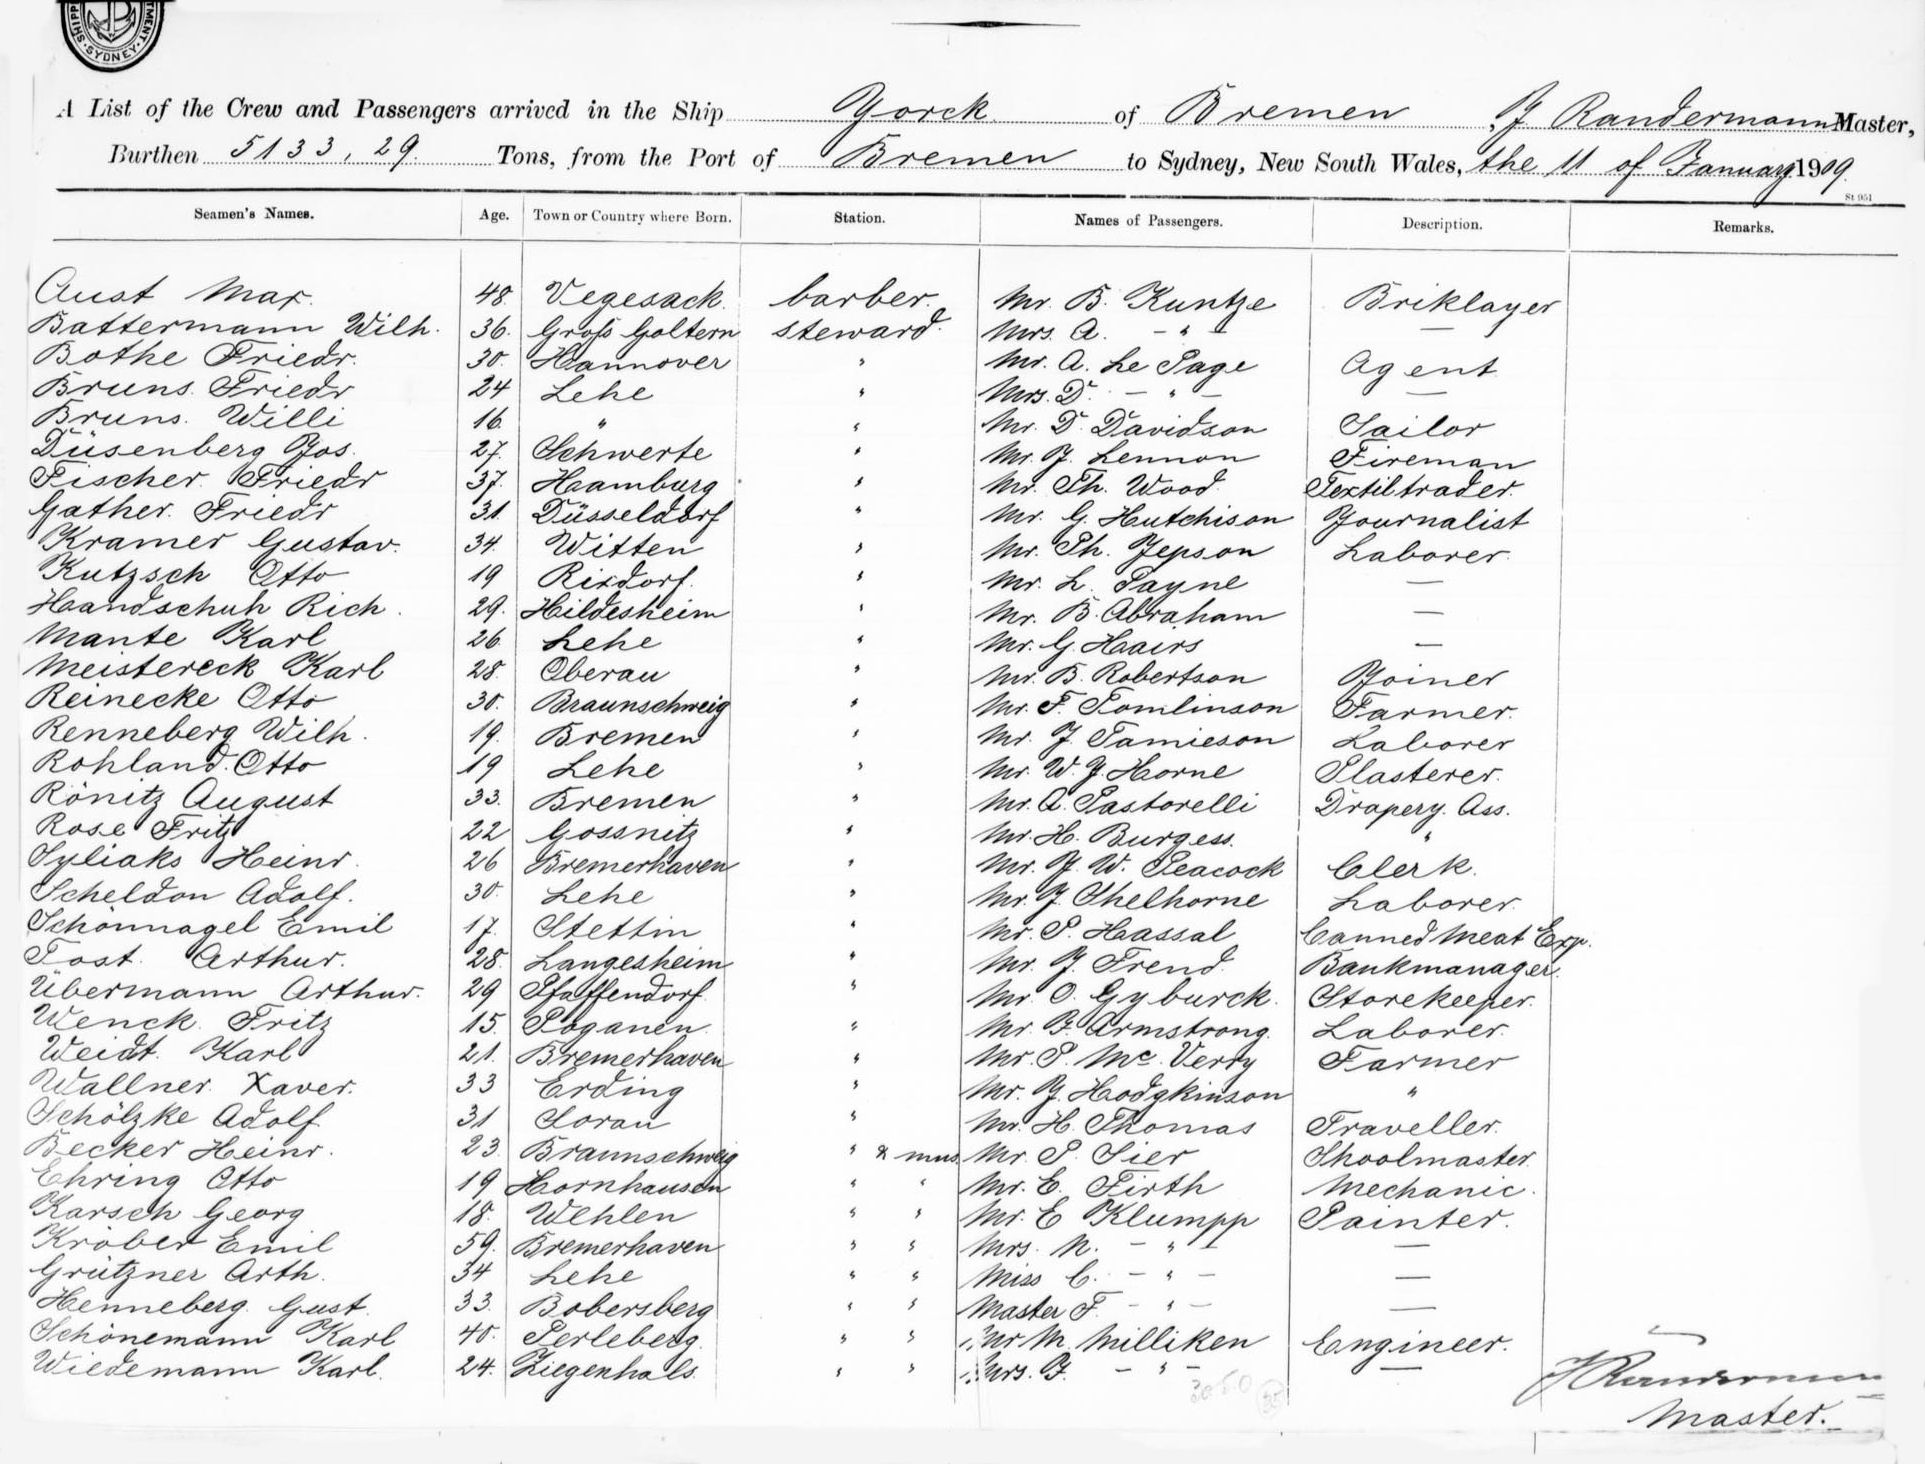 SHIPP TMENT SYDNEY
A List of the Crew and Passengers arrived in the Ship Yorck of Bremen, J Randermann Master,
Burthen 5133,29. Tons, from the Port of Bremen to Sydney, New South Wales, the 11 of January 1909.
St 951
Seamen's Names. Age. Town or Country where Born. Station. Names of Passengers. Description. Remarks.
Aust Max. 48. Vegesack. barber. Mr. B. Kuntze Briklayer
Battermann Wilh. 36. Gross Goltern steward. Mrs. A. — " — —
Bothe Friedr. 30. Hannover " Mr. A. Le Page Agent
Bruns. Friedr 24 Lehe " Mrs. D. — " — —
Bruns. Willi 16. " " Mr. D. Davidson Sailor
Düsenberg Jos. 27. Schwerte " Mr. J. Lennon Fireman
Fischer. Friedr 37. Hamburg " Mr. Th. Wood. Textiltrader.
Gather. Friedr 31. Düsseldorf " Mr. G. Hutchison Journalist
Kramer Gustav. 34. Witten " Mr. Ph. Jepson Laborer.
Kutzsch Otto 19 Rixdorf. " Mr. L. Payne —
Handschuh Rich. 29. Hildesheim " Mr. B. Abraham —
Mante Karl 26. Lehe " Mr. G. Hairs —
Meistereck Karl 28. Oberau " Mr. B. Robertson Joiner
Reinecke Otto 30. Braunschweig " Mr. F. Tomlinson Farmer.
Renneberg Wilh. 19. Bremen " Mr. J. Jamieson Laborer
Rohland. Otto 19 Lehe " Mr. W. J. Horne Plasterer.
Rönitz August 33. Bremen " Mr. A. Pastorelli Drapery. Ass.
Rose Fritz 22 Gossnitz " Mr. H. Burgess. "
Syliaks Heinr. 26 Bremerhaven " Mr. J. W. Peacock Clerk.
Scheldon Adolf. 30. Lehe " Mr. J. Shelhorne Laborer.
Schönnagel Emil 17. Stettin " Mr. P. Hassal Canned Meat Exp.
Tost. Arthur. 28. Langesheim " Mr. J. Trend Bankmanager.
Übermann Arthur. 29 Pfaffendorf. " Mr. O. Gyburck. Storekeeper.
Wenck. Fritz 15. Poganen. " Mr. F. Armstrong. Laborer.
Weidt. Karl 21. Bremerhaven " Mr. P. Mc. Verry Farmer
Wallner. Xaver. 33 Erding " Mr. J. Hodgkinson "
Schölzke Adolf. 31 Sorau " Mr. H. Thomas Traveller.
Becker Heinr. 23. Braunschweig " & mus. Mr. P. Sier Shoolmaster.
Ehring Otto 19 Hornhausen " " Mr. E. Firth Mechanic.
Karsch Georg 18. Wehlen " " Mr. E Klumpp Painter.
Kröber Emil 59. Bremerhaven " " Mrs. N. — " — —
Grützner Arth. 34 Lehe " " Miss C. — " — —
Henneberg. Gust. 33. Bobersberg " " Master F. — " — —
Schönemann Karl 40. Perleberg. " " Mr M. Milliken Engineer.
Wiedemann Karl. 24. Ziegenhals. " " Mrs. F. — " — —
J Randermann
Master.